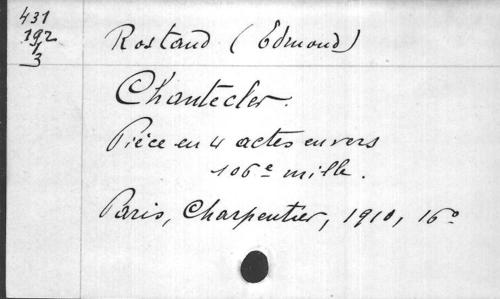 431
192
1
3
Rostand (Edmond)
Chantecler.
Pièce en 4 actes en vers
106e mille.
Paris, Charpentier, 1910, 16o